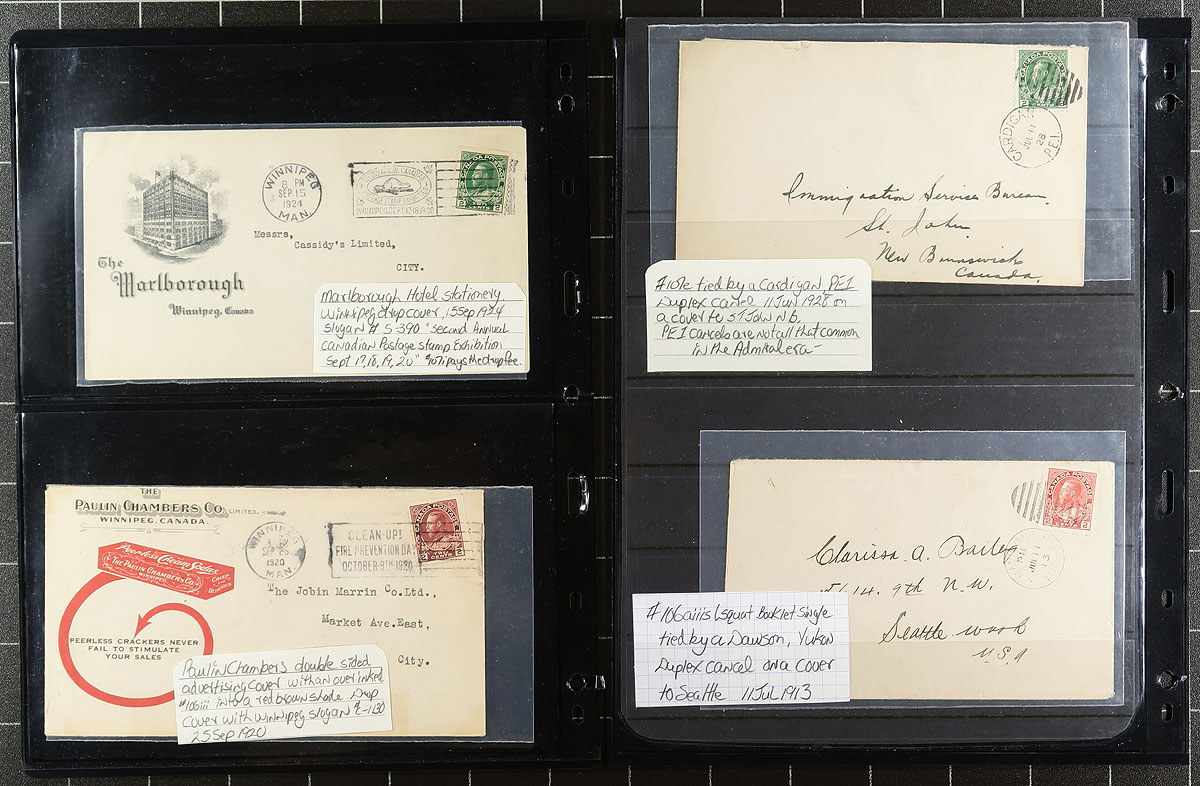 The
Marlborough
Winnipeg, Canada
WINNIPEG
8 PM
SEP 15
1924
MAN.
WINNIPEG, SEPT. 17.18.19.20
CANADA POSTAGE
2 CENTS 2
Messrs,
Cassidy's Limited,
CITY.
Marlborough Hotel stationery.
Winnipeg drop cover, 15 Sep 1924
slogan # S-390 "second Annual
Canadian Postage stamp Exhibition
Sept 17, 18, 19, 20" #107i pays the drop fee.
THE
PAULIN CHAMBERS CO. LIMITED.
WINNIPEG, CANADA.
WINNIPEG
SEP 25
1920
MAN.
CLEAN-UP!
FIRE PREVENTION DAY
OCTOBER-9TH-1920
CANADA POSTAGE
2 CENTS 2
Peerless Cream Sodas
THE PAULIN CHAMBERS CO.
WINNIPEG
CRISP
AND
DELICIOUS
PEERLESS CRACKERS NEVER
FAIL TO STIMULATE
YOUR SALES
The Jobin Marrin Co.Ltd.,
Market Ave.East,
City.
Paulin Chambers double sided
advertising cover with an over inked
#106iii into a red brown shade. Drop
cover with Winnipeg slogan #C-1130
25 Sep 1920
CANADA POSTAGE
CARDIGAN
11
28
P.E.I.
Immigration Services Bureau
St. John
New Brunswick
Canada.
#107e tied by a Cardigan, PEI
Duplex cancel 11 Jun 1928 on
a cover to St John N.B.
PEI cancels are not all that common
in the Admiral era-
CANADA POSTAGE
2 CENTS 2
PM
11
13
Clarissa A. Bailey
514. 9th N.W.
Seattle Wash
U.S.A
#106aiiis L squat Booklet Single
tied by a Dawson, Yukon
Duplex cancel on a cover
to Seattle 11 Jul 1913